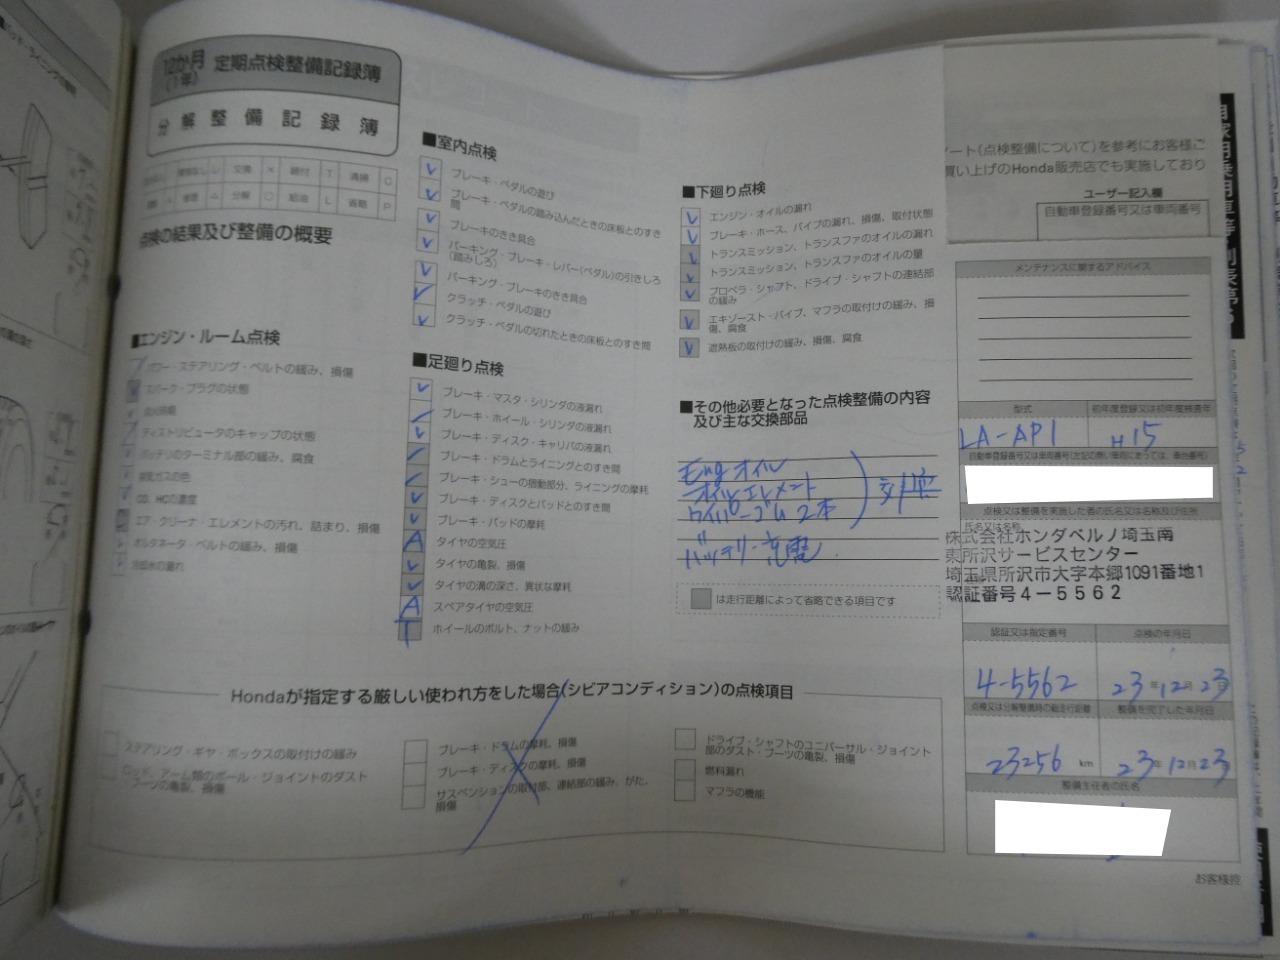 12か月
(1年)
定期点検整備記録簿
分解整備記録簿
交換
×
締付
T
清掃
C
分解
○
給油
L
省略
P
点検の結果及び整備の概要
■エンジン・ルーム点検
パワー・ステアリング・ベルトの緩み、損傷
スパーク・プラグの状態
点火時期
ディストリビュータのキャップの状態
バッテリのターミナル部の緩み、腐食
排気ガスの色
CO、HCの濃度
エア・クリーナ・エレメントの汚れ、詰まり、損傷
オルタネータ・ベルトの緩み、損傷
冷却水の漏れ
■室内点検
ブレーキ・ペダルの遊び
ブレーキ・ペダルの踏み込んだときの床板とのすき間
ブレーキのきき具合
パーキング・ブレーキ・レバー(ペダル)の引きしろ
(踏みしろ)
パーキング・ブレーキのきき具合
クラッチ・ペダルの遊び
クラッチ・ペダルの切れたときの床板とのすき間
■足廻り点検
ブレーキ・マスタ・シリンダの液漏れ
ブレーキ・ホイール・シリンダの液漏れ
ブレーキ・ディスク・キャリパの液漏れ
ブレーキ・ドラムとライニングとのすき間
ブレーキ・シューの摺動部分、ライニングの摩耗
ブレーキ・ディスクとパッドとのすき間
ブレーキ・パッドの摩耗
A タイヤの空気圧
タイヤの亀裂、損傷
タイヤの溝の深さ、異状な摩耗
A スペアタイヤの空気圧
T ホイールのボルト、ナットの緩み
■下廻り点検
エンジン・オイルの漏れ
ブレーキ・ホース、パイプの漏れ、損傷、取付状態
トランスミッション、トランスファのオイルの漏れ
トランスミッション、トランスファのオイルの量
プロペラ・シャフト、ドライブ・シャフトの連結部
の緩み
エキゾースト・パイプ、マフラの取付けの緩み、損
傷、腐食
遮熱板の取付けの緩み、損傷、腐食
■その他必要となった点検整備の内容
及び主な交換部品
Engオイル
オイルエレメント
ワイパーゴム2本
バッテリー充電
は走行距離によって省略できる項目です
Hondaが指定する厳しい使われ方をした場合(シビアコンディション)の点検項目
ステアリング・ギヤ・ボックスの取付けの緩み
ロッド、アーム類のボール・ジョイントのダスト
ブーツの亀裂、損傷
ブレーキ・ドラムの摩耗、損傷
ブレーキ・ディスクの摩耗、損傷
サスペンションの取付部、連結部の緩み、がた、
損傷
ドライブ・シャフトのユニバーサル・ジョイント
部のダスト・ブーツの亀裂、損傷
燃料漏れ
マフラの機能
ート(点検整備について)を参考にお客様ご
買い上げのHonda販売店でも実施しており
ユーザー記入欄
自動車登録番号又は車両番号
メンテナンスに関するアドバイス
型式
初年度登録又は初年度検査年
LA-AP1
H15
点検又は整備を実施した者の氏名又は名称及び住所
氏名又は名称
株式会社ホンダベルノ埼玉南
東所沢サービスセンター
埼玉県所沢市大字本郷1091番地1
認証番号4-5562
認証又は指定番号
点検の年月日
4-5562
23年12月23日
点検又は分解整備時の総走行距離
整備を完了した年月日
23256 km
23年12月23
整備主任者の氏名
お客様控